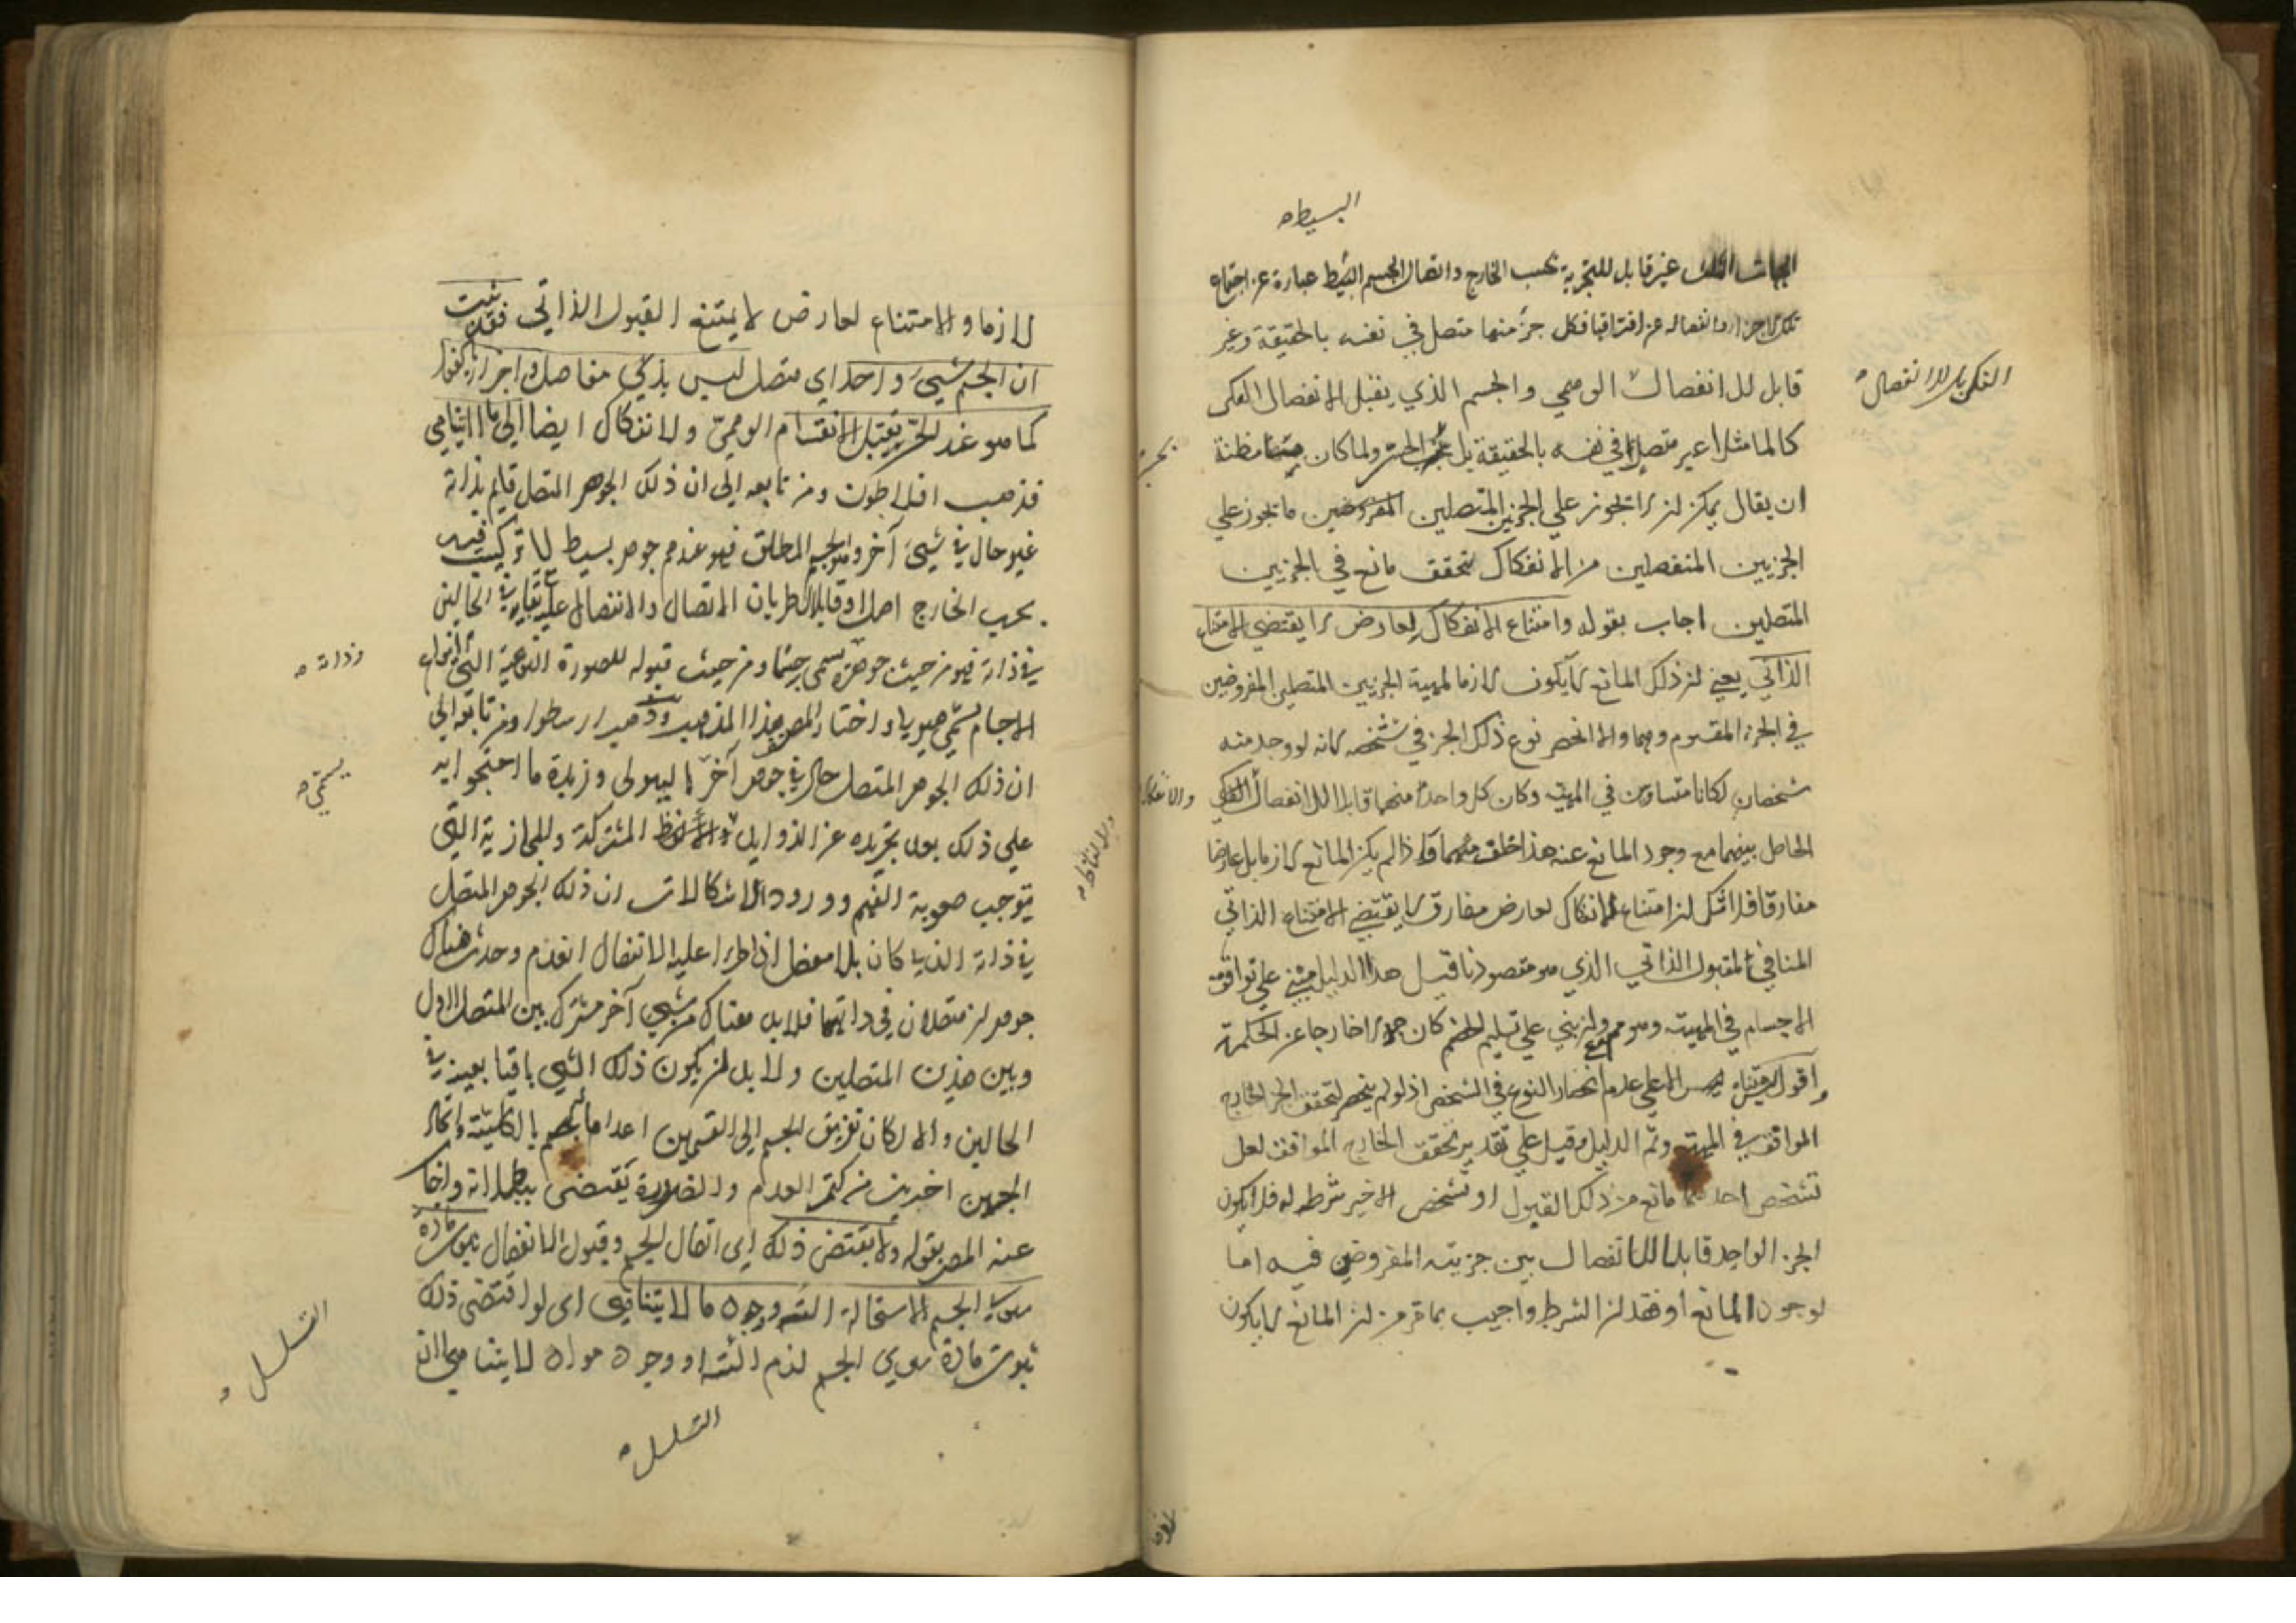 البسيط
غير قابل للتجزية بحسب الخارج واتصال الجسم البسيط عبارة عن اجتماع
تلك الاجزاء وانفصاله عن افتراقها فكل جزء منها متصل في نفسه بالحقيقة وغير
قابل للانفصال الوهمي والجسم الذي يقبل الانفصال الفكي
الفكي بل للانفصال
كالماء مثلا غير متصل في نفسه بالحقيقة بل بحسب الحس ولما كان مظنة
ان يقال يمكن ان لا تجوز على الجزئين المتصلين المفروضين ما تجوز على
الجزيين المنفصلين من الانفكاك لتحقق مانع في الجزيين
المتصلين اجاب بقوله وامتناع الانفكاك لعارض لا يقتضي الامتناع
الذاتي يعني ان ذلك المانع لا يكون لازما لمهية الجزيين المتصلين المفروضين
في الجزء المقسوم وهما والا انحصر نوع ذلك الجزء في شخصه لانه لو وجد منه
شخصان لكانا متساويين في المهية وكان كل واحد منهما قابلا للانفصال الفكي
الحاصل بينهما مع وجود المانع عنه هذا خلف واذا لم يكن المانع لازما بل عارضا
مفارقا فلا شك ان امتناع الانفكاك لعارض مفارق لا يقتضي الامتناع الذاتي
المنافي للقبول الذاتي الذي هو مقصودنا قيل هذا الدليل مبني على توافق
الاجسام في المهية وهو مم وان بني على تسليم كان خارجا عن الحكمة
واقول ليس الا على عدم انحصار النوع في الشخص اذ لو لم ينحصر لتحقق الجزء الخارج
الموافق في المهية وتم الدليل وقيل على تقدير تحقق الخارج الموافق لعل
تشخص احدهما مانع من ذلك القبول او تشخص الاخير شرط له فلا يكون
الجزء الواحد قابلا للانفصال بين جزيئه المفروضين فيه اما
لوجود المانع او فقدان الشرط واجيب بما مر من ان المانع لا يكون
لازما والامتناع لعارض لا يمتنع القبول الذاتي فقد ثبت
ان الجسم شيء واحد اي متصل ليس بذي مفاصل واجزاء بالفعل
كما هو عند الحس يقبل الانقسام الوهمي والانفكاك ايضا الى ما لا يتناهى
فذهب افلاطون ومن تابعه الى ان ذلك الجوهر المتصل قايم بذاته
غير حال في شيء آخر وهو الجسم المطلق فهو عندهم جوهر بسيط لا تركيب فيه
بحسب الخارج اصلا وقابل لطريان الاتصال والانفصال عليه مع بقائه في الحالين
في ذاته فهو من حيث جوهره يسمى جسما ومن حيث قبوله للصورة النوعية التي لانواع
وذاته
الاجسام يسمى هيولى واختار المص هذا المذهب وذهب ارسطو ومن تابعه الى
ان ذلك الجوهر المتصل حال في جوهر آخر يسمى بالهيولى وزبدة ما احتجوا به
يسمى
على ذلك بعد تجريده عن الزوايد والالفاظ المشتركة والمجازية التي
والالفاظ
توجب صعوبة الفهم وورود الاشكالات ان ذلك الجوهر المتصل
في ذاته الذي كان بلا مفصل اذا طرأ عليه الانفصال انعدم وحدث هناك
جوهران متصلان في ذاتيهما فلا بد هناك من شيء آخر مشترك بين المتصل الاول
وبين هذين المتصلين ولا بد ان يكون ذلك الشيء باقيا بعينه في
الحالين والا لكان تفريق الجسم الى القسمين اعداما للجسم بالكلية وايجاد
الجسمين اخرين من كتم العدم والضرورة تقتضي ببطلانه واجاب
عنه المص بقوله ولا يقتضي ذلك اي اتصال الجسم وقبول الانفصال ثبوت مادة
سوى الجسم لاستحالة التسلسل ووجود ما لا يتناهى اي لو اقتضى ذلك
التسلسل
ثبوت مادة سوى الجسم لزم التسلسل او وجود مواد لا يتناهى لان
التسلسل